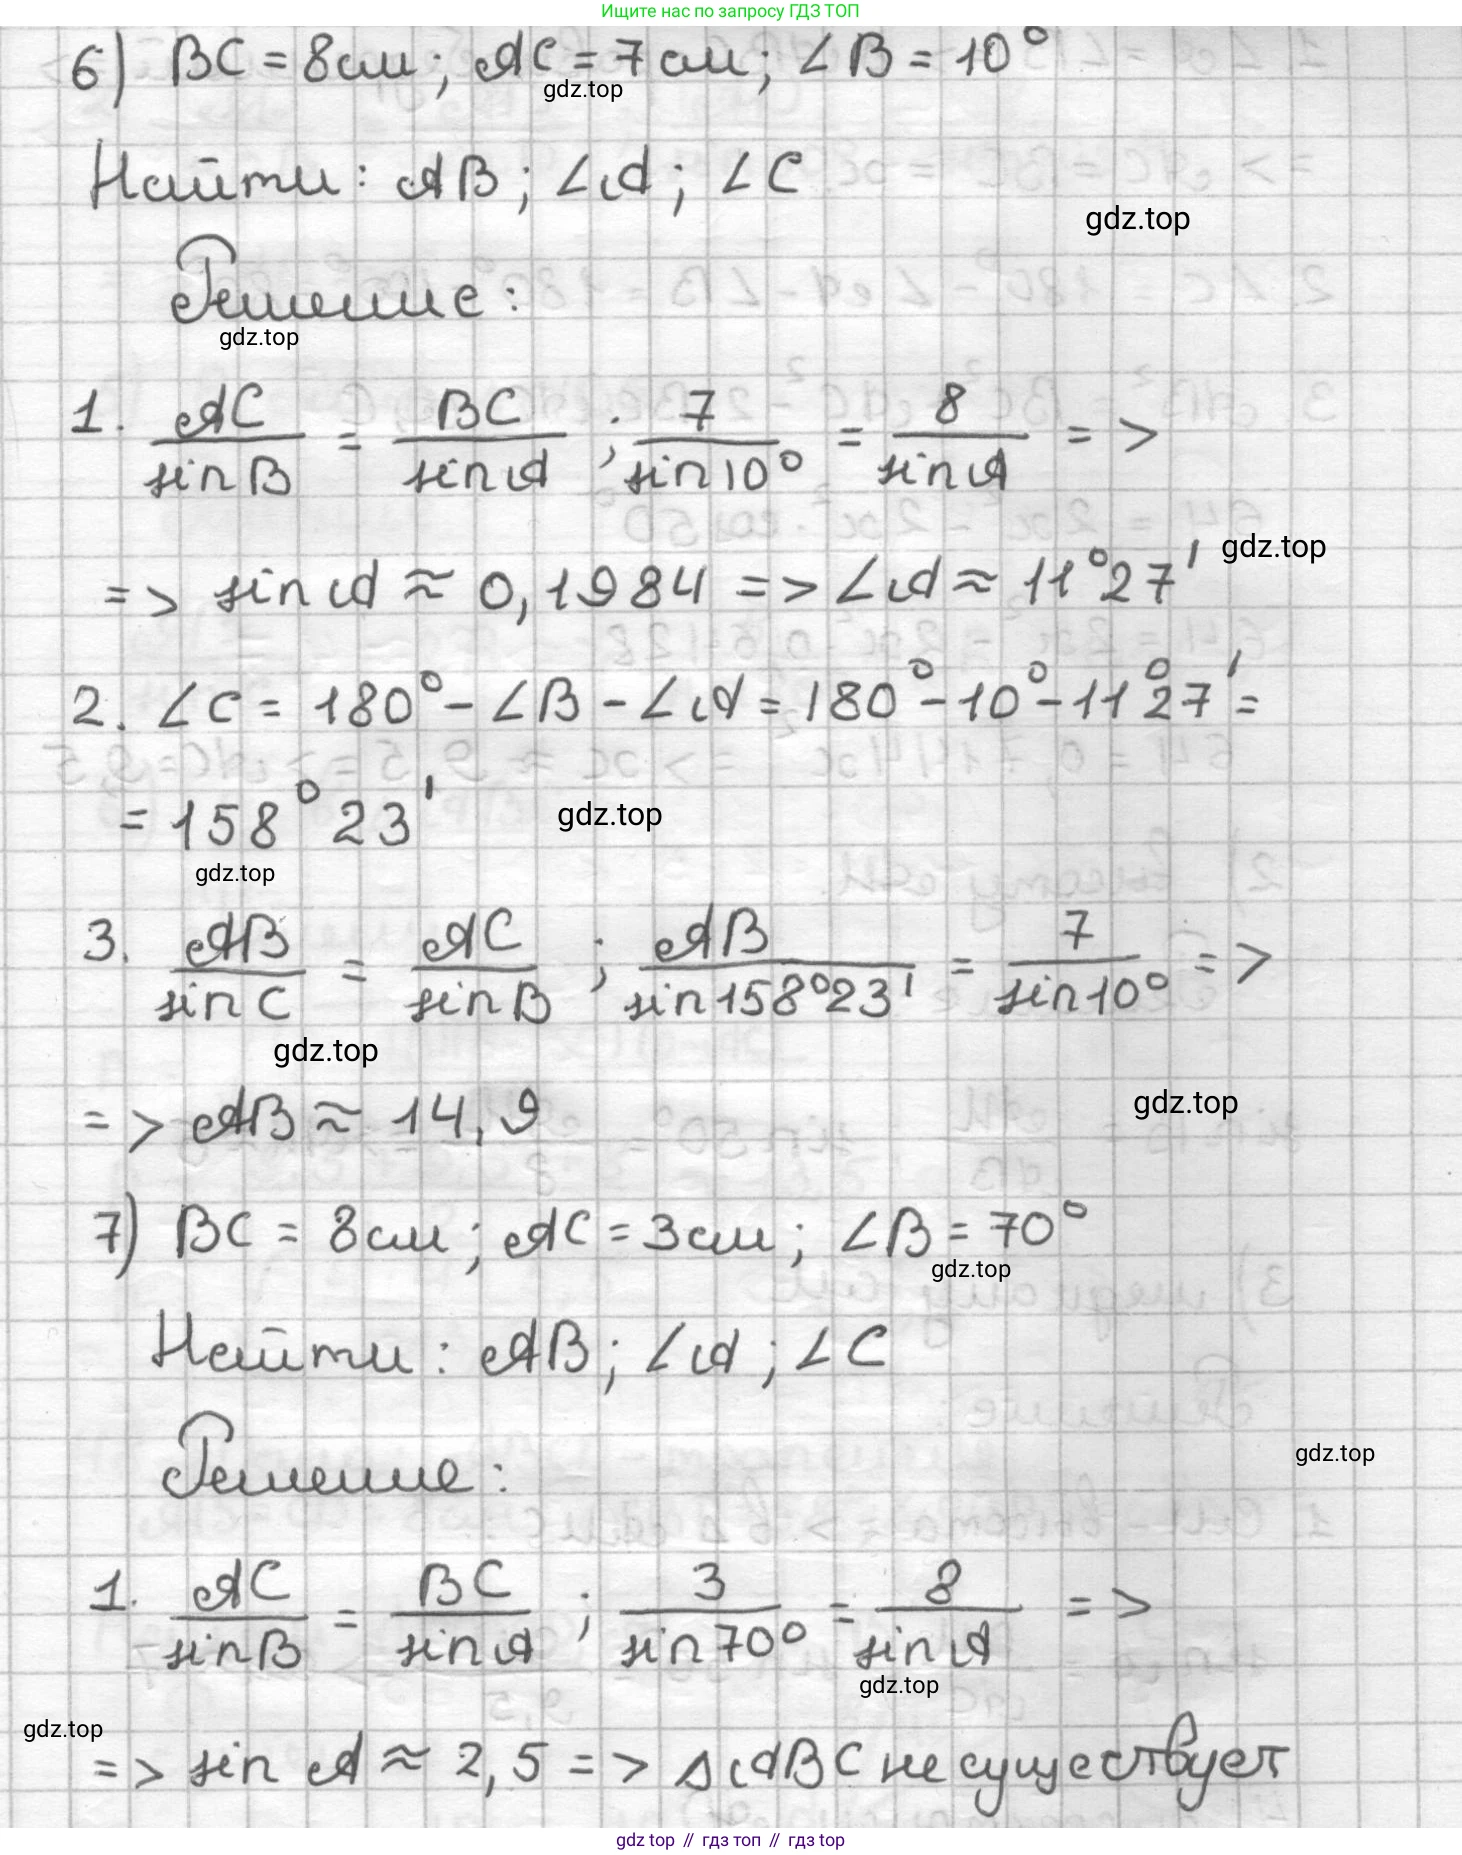 Ищите нас по запросу ГДЗ ТОП
6) BC = 8 см; AC = 7 см; ∠B = 10°
gdz.top
Найти: AB; ∠A; ∠C
gdz.top
Решение:
gdz.top
1. AC/sin B = BC/sin A ; 7/sin 10° = 8/sin A =>
gdz.top
=> sin A ≈ 0,1984 => ∠A ≈ 11°27'
2. ∠C = 180° - ∠B - ∠A = 180° - 10° - 11°27' =
= 158°23'
gdz.top
gdz.top
3. AB/sin C = AC/sin B ; AB/sin 158°23' = 7/sin 10° =>
gdz.top
=> AB ≈ 14,9
gdz.top
7) BC = 8 см; AC = 3 см; ∠B = 70°
gdz.top
Найти: AB; ∠A; ∠C
Решение:
gdz.top
1. AC/sin B = BC/sin A ; 3/sin 70° = 8/sin A =>
gdz.top
gdz.top
=> sin A ≈ 2,5 => ΔABC не существует
gdz top // гдз топ // гдз top